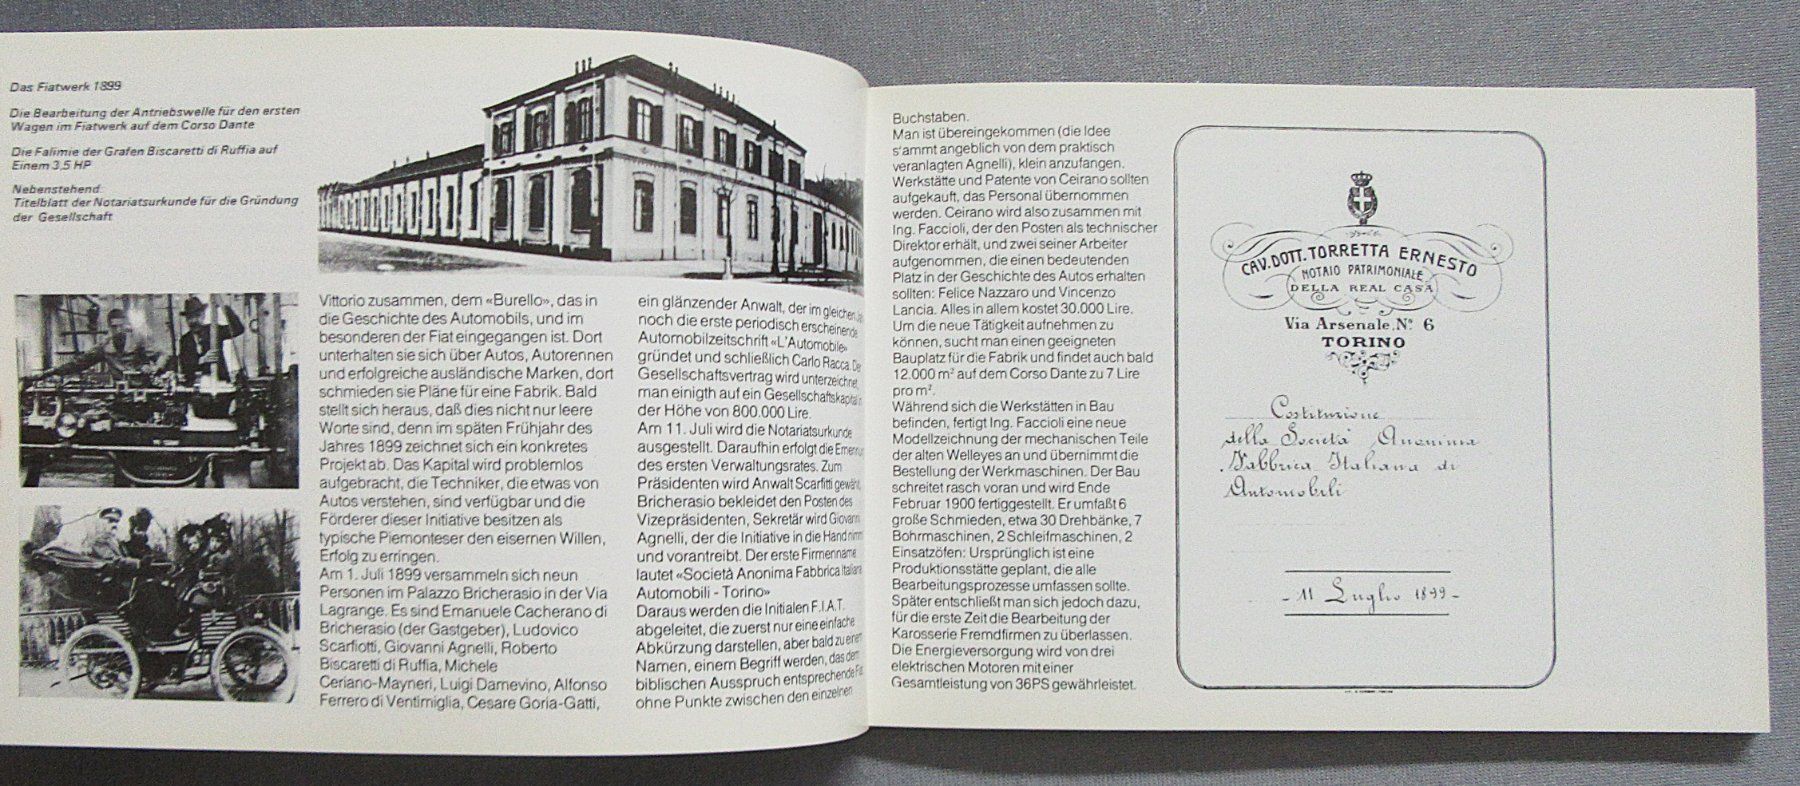 Das Fiatwerk 1899
Die Bearbeitung der Antriebswelle für den ersten
Wagen im Fiatwerk auf dem Corso Dante
Die Falimie der Grafen Biscaretti di Ruffia auf
Einem 3,5 HP
Nebenstehend:
Titelblatt der Notariatsurkunde für die Gründung
der Gesellschaft
Vittorio zusammen, dem «Burello», das in
die Geschichte des Automobils, und im
besonderen der Fiat eingegangen ist. Dort
unterhalten sie sich über Autos, Autorennen
und erfolgreiche ausländische Marken, dort
schmieden sie Pläne für eine Fabrik. Bald
stellt sich heraus, daß dies nicht nur leere
Worte sind, denn im späten Frühjahr des
Jahres 1899 zeichnet sich ein konkretes
Projekt ab. Das Kapital wird problemlos
aufgebracht, die Techniker, die etwas von
Autos verstehen, sind verfügbar und die
Förderer dieser Initiative besitzen als
typische Piemonteser den eisernen Willen,
Erfolg zu erringen.
Am 1. Juli 1899 versammeln sich neun
Personen im Palazzo Bricherasio in der Via
Lagrange. Es sind Emanuele Cacherano di
Bricherasio (der Gastgeber), Ludovico
Scarfiotti, Giovanni Agnelli, Roberto
Biscaretti di Ruffia, Michele
Ceriano-Mayneri, Luigi Damevino, Alfonso
Ferrero di Ventimiglia, Cesare Goria-Gatti,
ein glänzender Anwalt, der im gleichen
noch die erste periodisch erscheinende
Automobilzeitschrift «L'Automobile»
gründet und schließlich Carlo Racca. Der
Gesellschaftsvertrag wird unterzeichnet,
man einigth auf ein Gesellschaftskapital in
der Höhe von 800.000 Lire.
Am 11. Juli wird die Notariatsurkunde
ausgestellt. Daraufhin erfolgt die
des ersten Verwaltungsrates. Zum
Präsidenten wird Anwalt Scarfitti gewählt,
Bricherasio bekleidet den Posten des
Vizepräsidenten, Sekretär wird Giovanni
Agnelli, der die Initiative in die Hand nimmt
und vorantreibt. Der erste Firmenname
lautet «Società Anonima Fabbrica Italiana
Automobili - Torino»
Daraus werden die Initialen F.I.A.T.
abgeleitet, die zuerst nur eine einfache
Abkürzung darstellen, aber bald zu einem
Namen, einem Begriff werden, das dem
biblischen Ausspruch entsprechende
ohne Punkte zwischen den einzelnen
Buchstaben.
Man ist übereingekommen (die Idee
s'ammt angeblich von dem praktisch
veranlagten Agnelli), klein anzufangen.
Werkstätte und Patente von Ceirano sollten
aufgekauft, das Personal übernommen
werden. Ceirano wird also zusammen mit
Ing. Faccioli, der den Posten als technischer
Direktor erhält, und zwei seiner Arbeiter
aufgenommen, die einen bedeutenden
Platz in der Geschichte des Autos erhalten
sollten: Felice Nazzaro und Vincenzo
Lancia. Alles in allem kostet 30.000 Lire.
Um die neue Tätigkeit aufnehmen zu
können, sucht man einen geeigneten
Bauplatz für die Fabrik und findet auch bald
12.000 m² auf dem Corso Dante zu 7 Lire
pro m².
Während sich die Werkstätten in Bau
befinden, fertigt Ing. Faccioli eine neue
Modellzeichnung der mechanischen Teile
der alten Welleyes an und übernimmt die
Bestellung der Werkmaschinen. Der Bau
schreitet rasch voran und wird Ende
Februar 1900 fertiggestellt. Er umfaßt 6
große Schmieden, etwa 30 Drehbänke, 7
Bohrmaschinen, 2 Schleifmaschinen, 2
Einsatzöfen: Ursprünglich ist eine
Produktionsstätte geplant, die alle
Bearbeitungsprozesse umfassen sollte.
Später entschließt man sich jedoch dazu,
für die erste Zeit die Bearbeitung der
Karosserie Fremdfirmen zu überlassen.
Die Energieversorgung wird von drei
elektrischen Motoren mit einer
Gesamtleistung von 36PS gewährleistet.
CAV. DOTT. TORRETTA ERNESTO
NOTAIO PATRIMONIALE
DELLA REAL CASA
Via Arsenale. N° 6
TORINO
Costituzione
della Società Anonima
Fabbrica Italiana di
Automobili
- 11 Luglio 1899 -